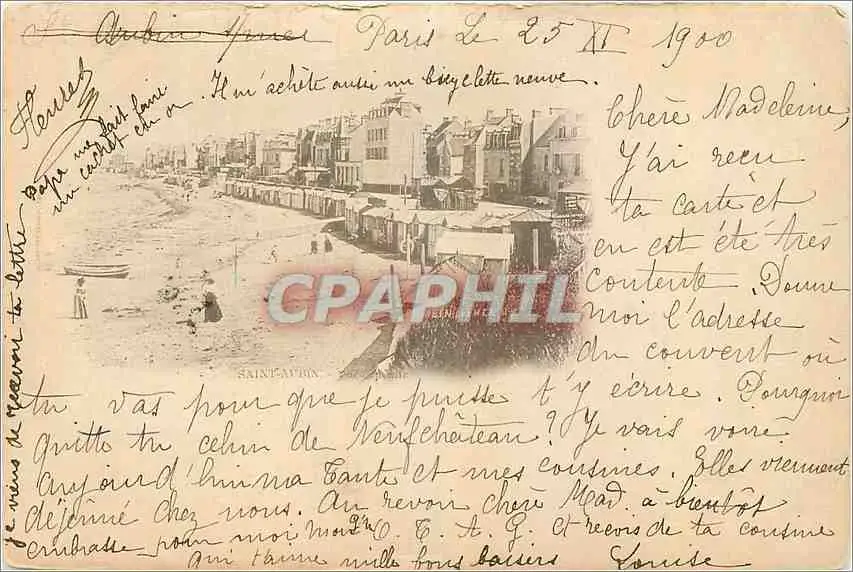 St Aubin s/mer Paris Le 25 XI 1900
Il m'achète aussi un bicyclette neuve.
Papa me fait faire
un cachet en or.
Chère Madeleine,
J'ai reçu
ta carte et
en est été très
contente. Donne
moi l'adresse
du couvent où
tu vas pour que je puisse t'y écrire. Pourquoi
quitte tu celui de Neufchâteau? Je vais voire
aujourd'hui ma Tante et mes cousines. Elles viennent
déjeuné chez nous. Au revoir chère Mad. à bientôt
embrasse pour moi O. T. A. G. et reçois de ta cousine
qui t'aime mille bons baisers Louise
je viens de recevoir ta lettre
SAINT-AUBIN
CPAPHIL